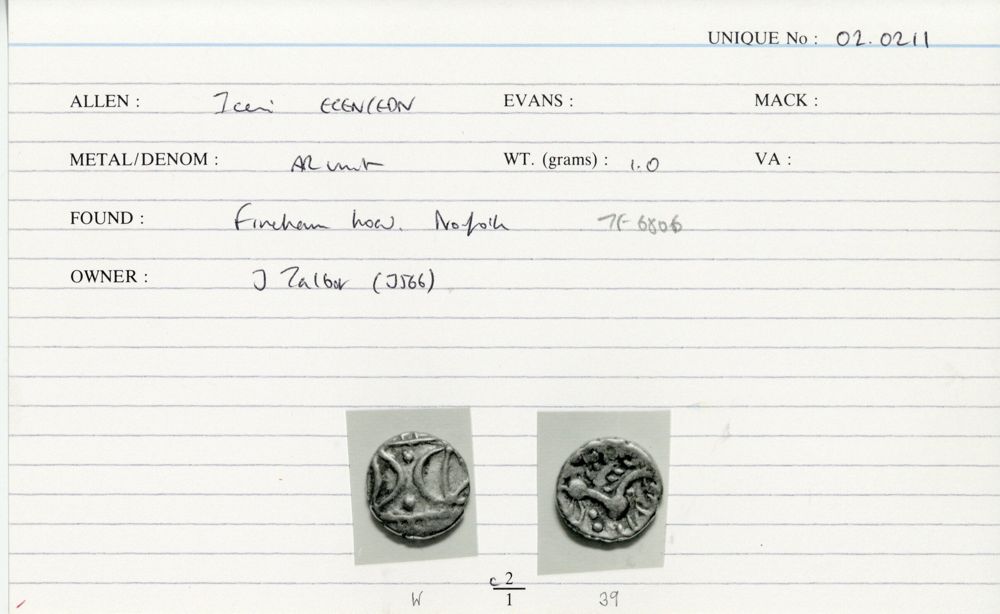 UNIQUE No : 02.0211
ALLEN : Iceni ECEN/EDN EVANS : MACK :
METAL/DENOM : AR unit WT. (grams) : 1.0 VA :
FOUND : Fincham hoard. Norfolk TF 6806
OWNER : J Talbot (J566)
c 2
W 1 39